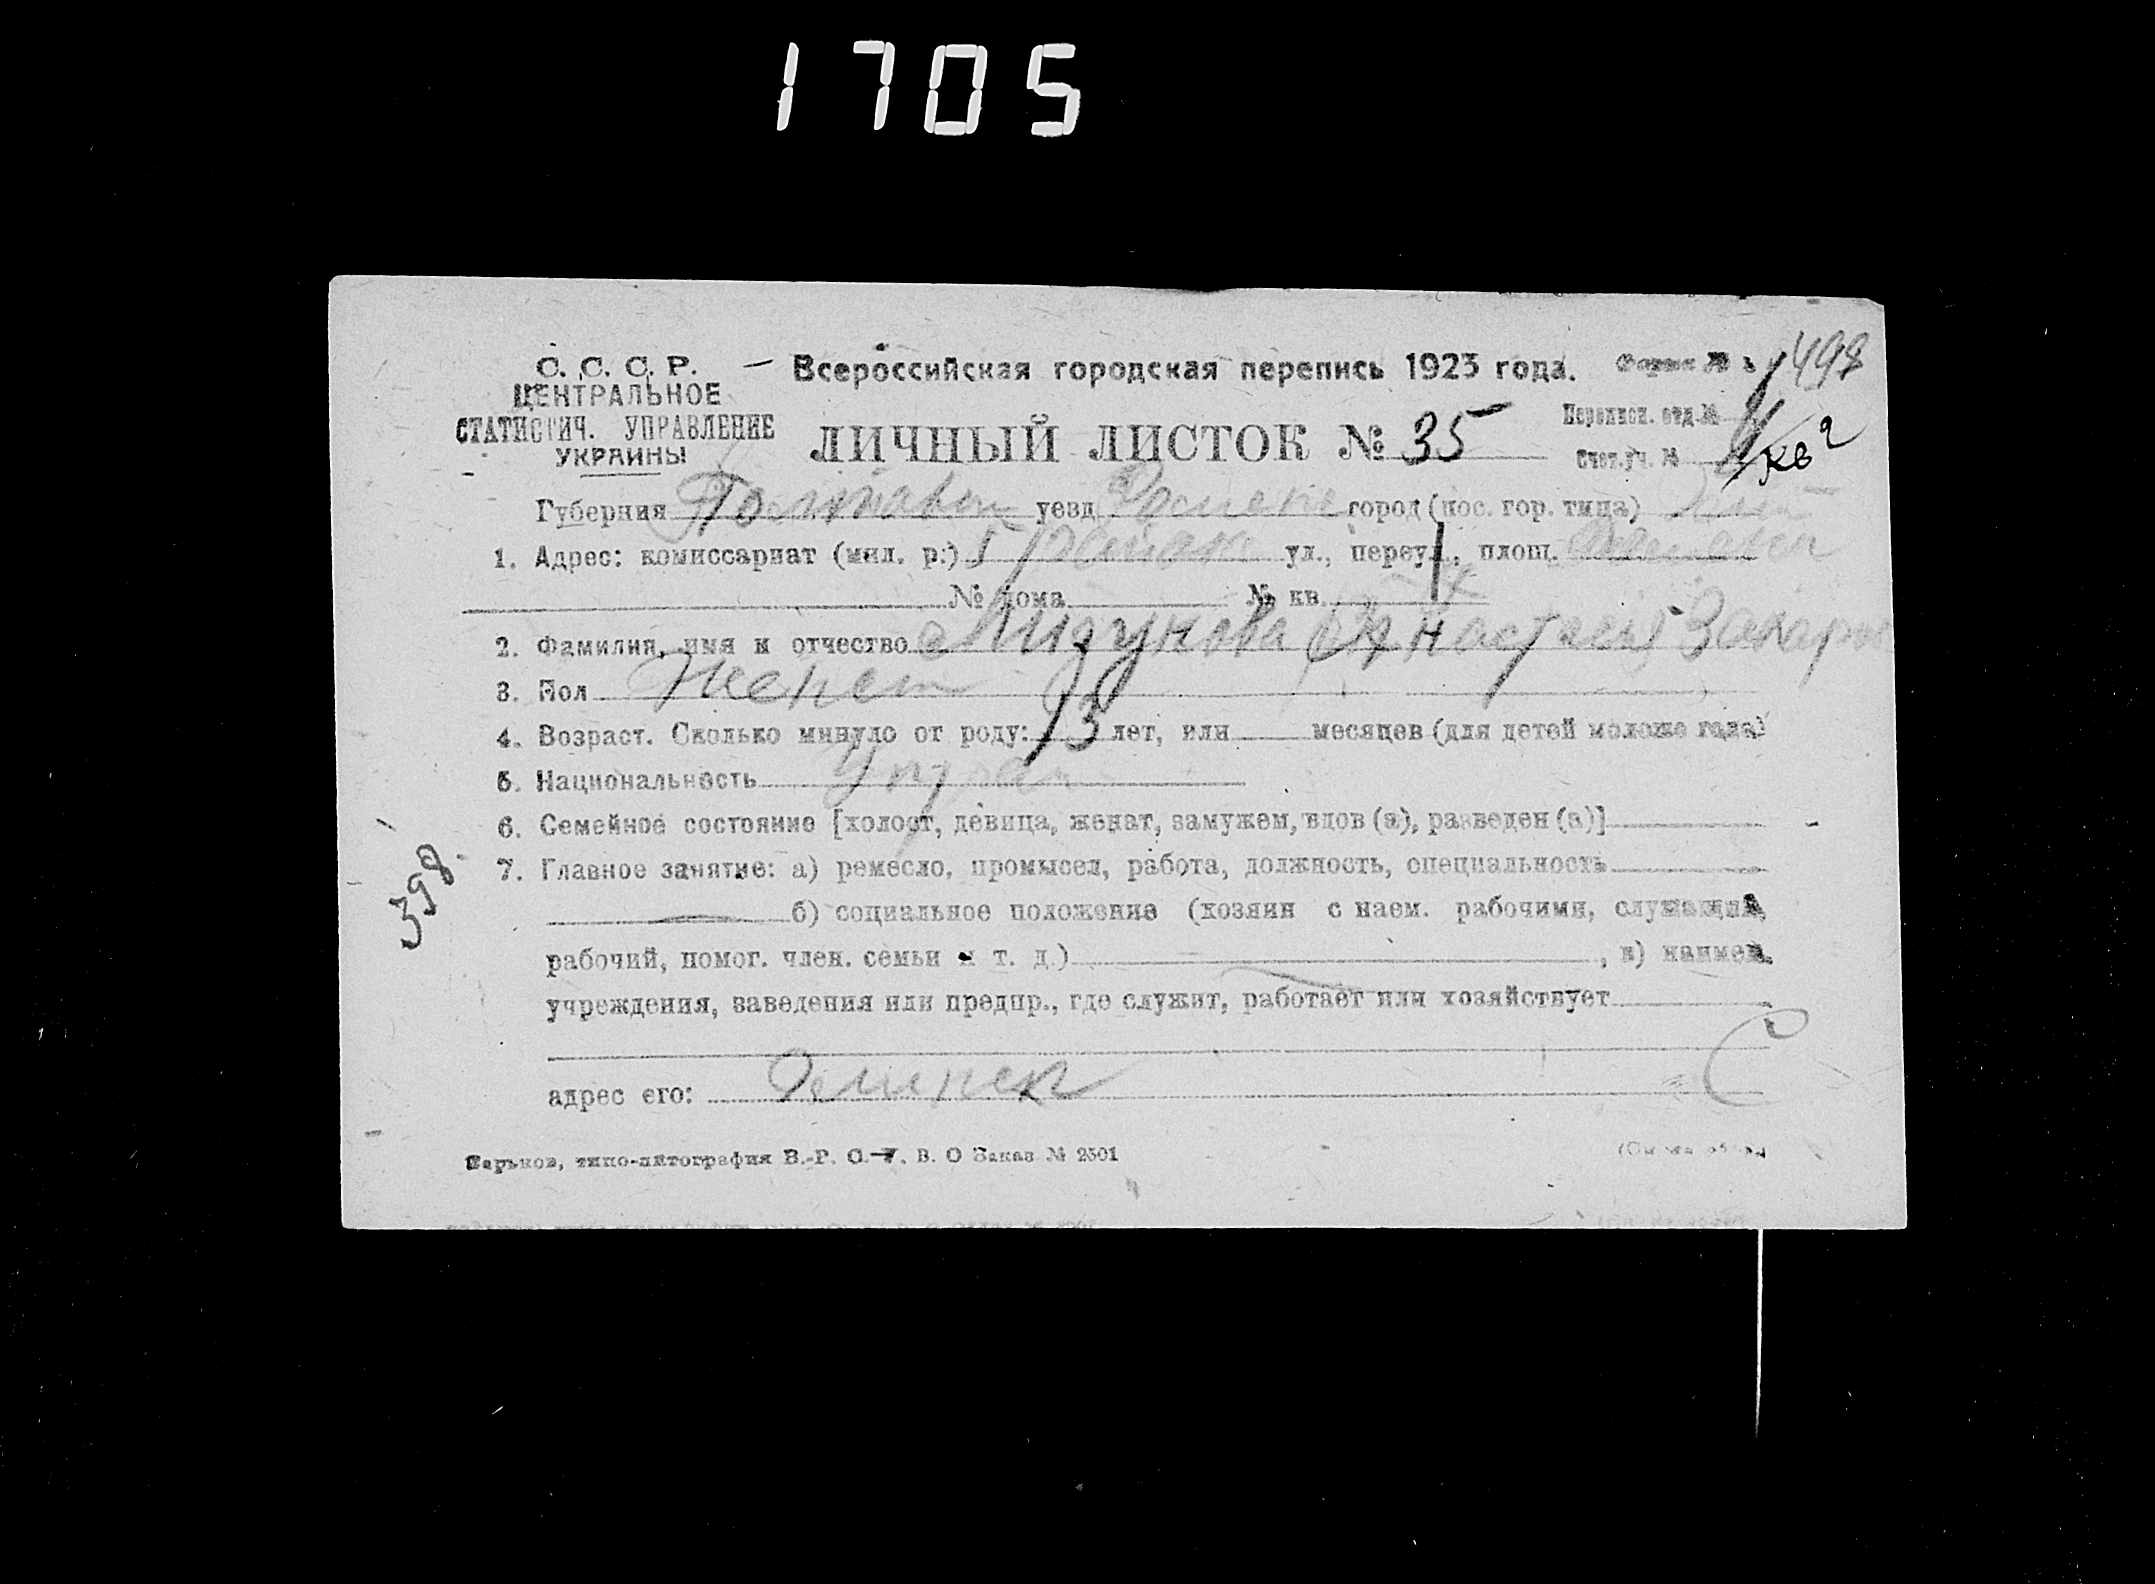 1705
С. С. С. Р. — Всероссийская городская перепись 1923 года. Форма № 1498
ЦЕНТРАЛЬНОЕ
СТАТИСТИЧ. УПРАВЛЕНИЕ
УКРАИНЫ
ЛИЧНЫЙ ЛИСТОК № 35
Переписн. отд. №
Счет. уч. № кв 2
Губерния Полтавск уезд город (пос. гор. типа)
1. Адрес: комиссариат (мил. р.) ул., переул., площ.
№ дома № кв.
2. Фамилия, имя и отчество Анастасия Захаров
3. Пол Женск
4. Возраст. Сколько минуло от роду: 13 лет, или месяцев (для детей моложе года)
5. Национальность Украин
6. Семейное состояние [холост, девица, женат, замужем, вдов (а), разведен (а)]
7. Главное занятие: а) ремесло, промысел, работа, должность, специальность
б) социальное положение (хозяин с наем. рабочими, служащий,
рабочий, помог. член. семьи и т. д.) , в) наимен.
учреждения, заведения или предпр., где служит, работает или хозяйствует
адрес его:
398.
Харьков, типо-литография В.-Р. С.—У. В. О Заказ № 2501